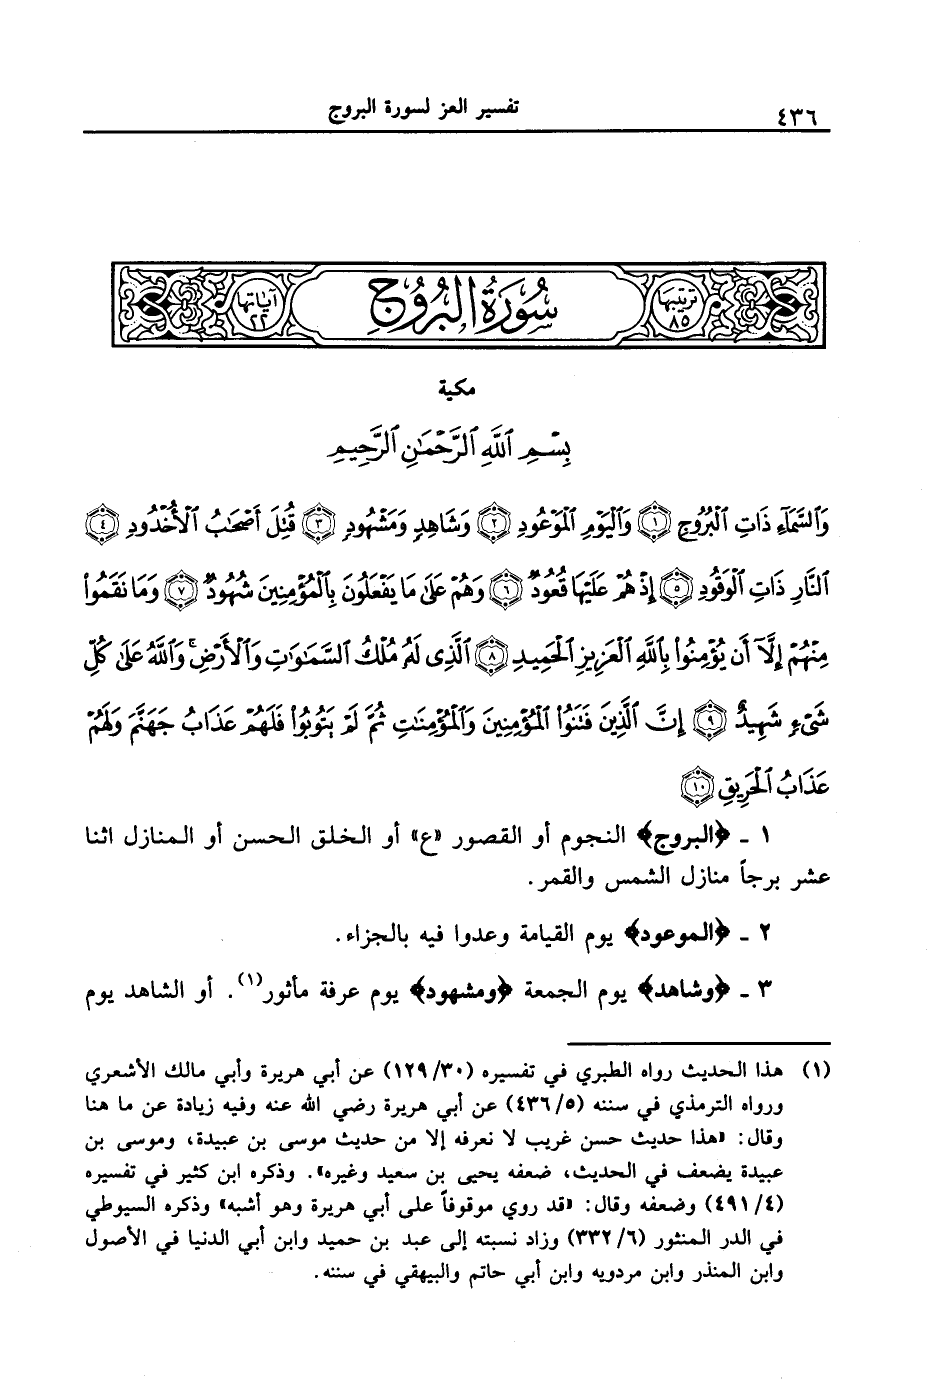 ٤٣٦ تفسير العز لسورة البروج
ترتيبها ٨٥ سُورَةُ البُرُوجِ آياتها ٢٢
مكية
بِسْمِ ٱللَّهِ ٱلرَّحْمَٰنِ ٱلرَّحِيمِ
وَٱلسَّمَآءِ ذَاتِ ٱلْبُرُوجِ ١ وَٱلْيَوْمِ ٱلْمَوْعُودِ ٢ وَشَاهِدٍ وَمَشْهُودٍ ٣ قُتِلَ أَصْحَٰبُ ٱلْأُخْدُودِ ٤
ٱلنَّارِ ذَاتِ ٱلْوَقُودِ ٥ إِذْ هُمْ عَلَيْهَا قُعُودٌ ٦ وَهُمْ عَلَىٰ مَا يَفْعَلُونَ بِٱلْمُؤْمِنِينَ شُهُودٌ ٧ وَمَا نَقَمُوا۟
مِنْهُمْ إِلَّآ أَن يُؤْمِنُوا۟ بِٱللَّهِ ٱلْعَزِيزِ ٱلْحَمِيدِ ٨ ٱلَّذِى لَهُۥ مُلْكُ ٱلسَّمَٰوَٰتِ وَٱلْأَرْضِ ۚ وَٱللَّهُ عَلَىٰ كُلِّ
شَىْءٍ شَهِيدٌ ٩ إِنَّ ٱلَّذِينَ فَتَنُوا۟ ٱلْمُؤْمِنِينَ وَٱلْمُؤْمِنَٰتِ ثُمَّ لَمْ يَتُوبُوا۟ فَلَهُمْ عَذَابُ جَهَنَّمَ وَلَهُمْ
عَذَابُ ٱلْحَرِيقِ ١٠
١ ـ ﴿البروج﴾ النجوم أو القصور «ع» أو الخلق الحسن أو المنازل اثنا
عشر برجاً منازل الشمس والقمر.
٢ ـ ﴿الموعود﴾ يوم القيامة وعدوا فيه بالجزاء.
٣ ـ ﴿وشاهد﴾ يوم الجمعة ﴿ومشهود﴾ يوم عرفة مأثور(١). أو الشاهد يوم
(١) هذا الحديث رواه الطبري في تفسيره (١٢٩/٣٠) عن أبي هريرة وأبي مالك الأشعري
ورواه الترمذي في سننه (٤٣٦/٥) عن أبي هريرة رضي الله عنه وفيه زيادة عن ما هنا
وقال: «هذا حديث حسن غريب لا نعرفه إلا من حديث موسى بن عبيدة، وموسى بن
عبيدة يضعف في الحديث، ضعفه يحيى بن سعيد وغيره». وذكره ابن كثير في تفسيره
(٤٩١/٤) وضعفه وقال: «قد روي موقوفاً على أبي هريرة وهو أشبه» وذكره السيوطي
في الدر المنثور (٣٣٢/٦) وزاد نسبته إلى عبد بن حميد وابن أبي الدنيا في الأصول
وابن المنذر وابن مردويه وابن أبي حاتم والبيهقي في سننه.